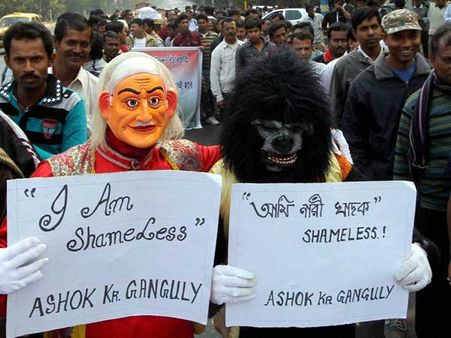 "I Am
ShameLess"
ASHOK KR. GANGULY
"আমি নারী
SHAMELESS.!
ASHOK KR GANGULY